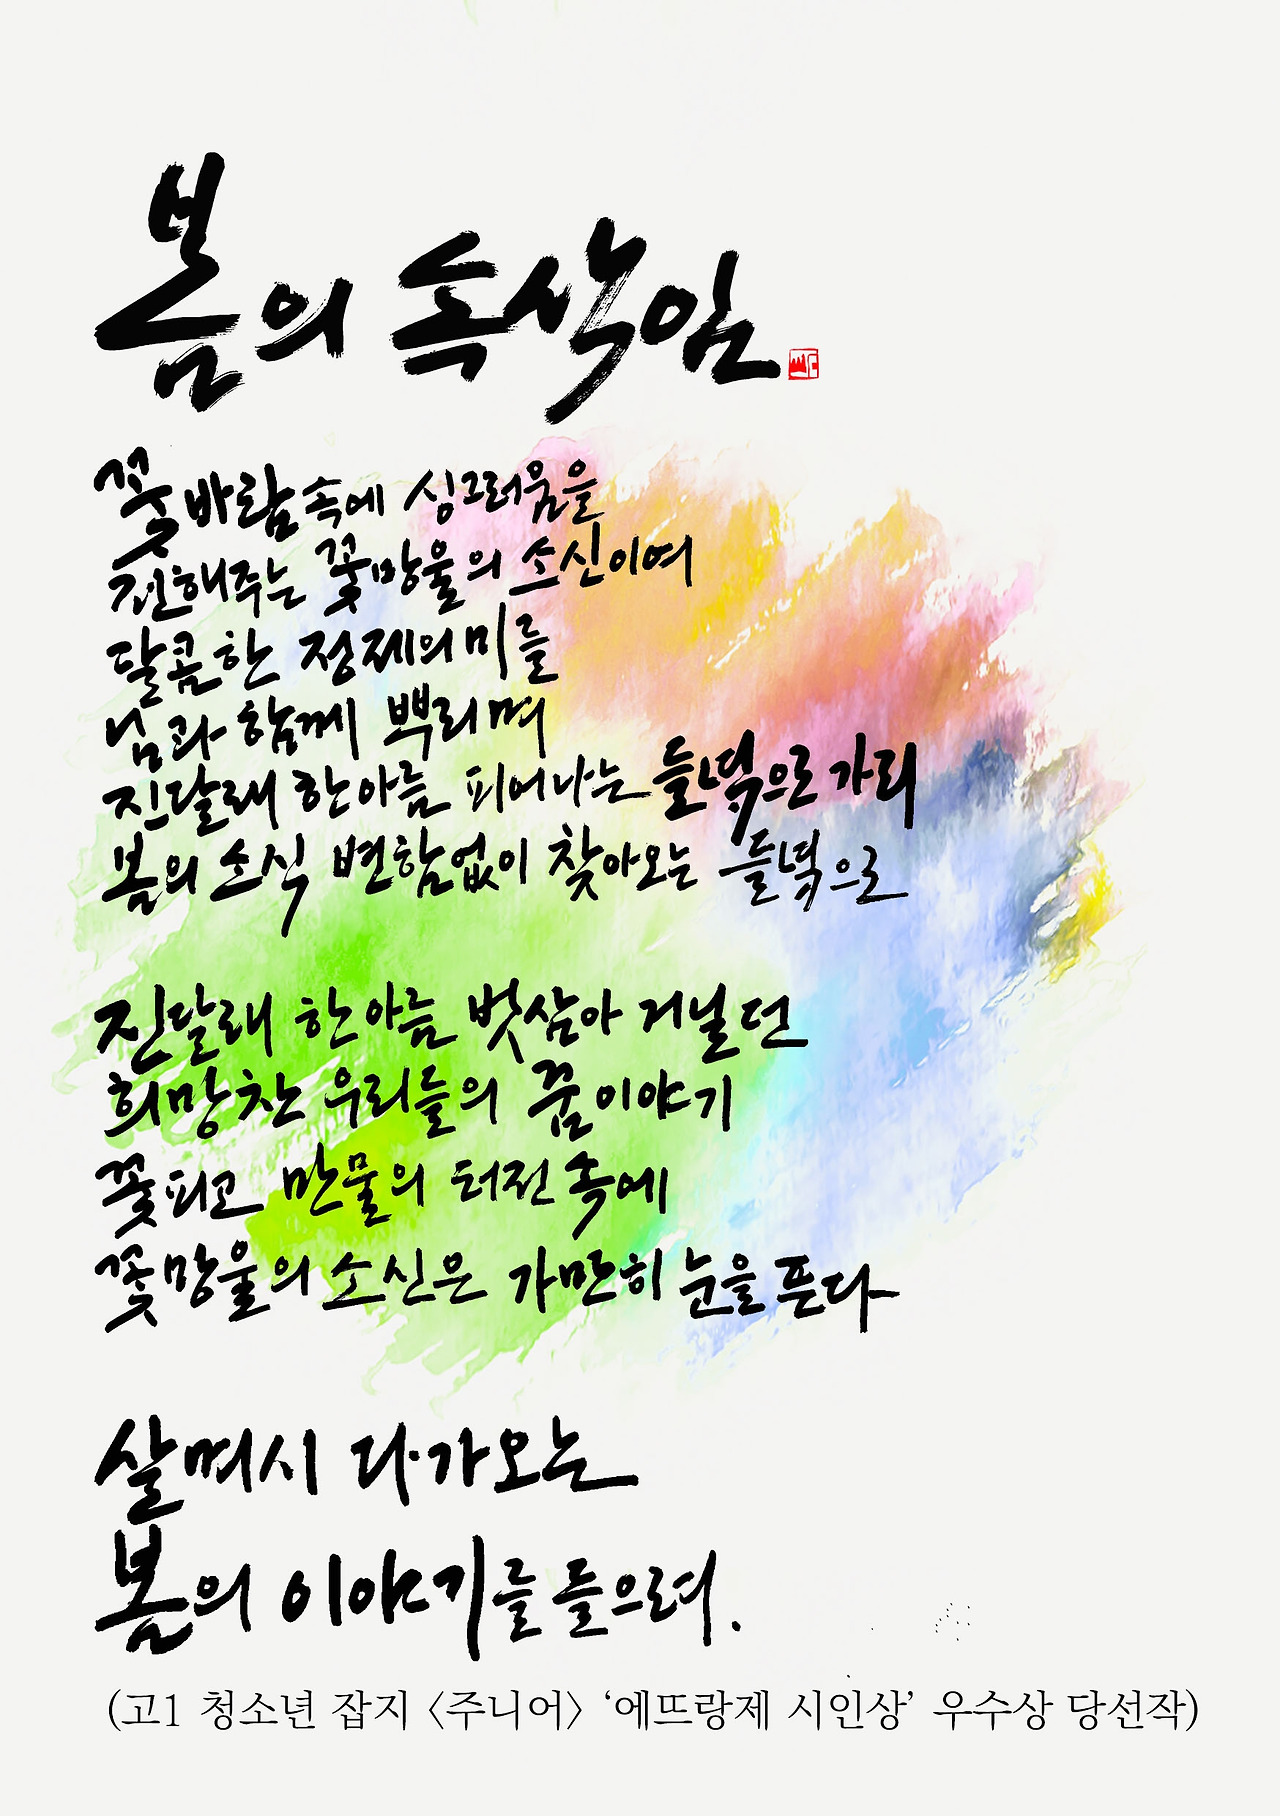 봄의 속삭임
꽃바람 속에 싱그러움을
전해주는 꽃망울의 소신이여
달콤한 정제의 미를
님과 함께 뿌리며
진달래 한아름 피어나는 들녘으로 가리
봄의 소식 변함없이 찾아오는 들녘으로
진달래 한아름 벗삼아 거닐던
희망찬 우리들의 꿈이야기
꽃피고 만물의 터전 속에
꽃망울의 소신은 가만히 눈을 푼다
살며시 다가오는
봄의 이야기를 들으려.
(고1 청소년 잡지 〈주니어〉 ‘에뜨랑제 시인상’ 우수상 당선작)